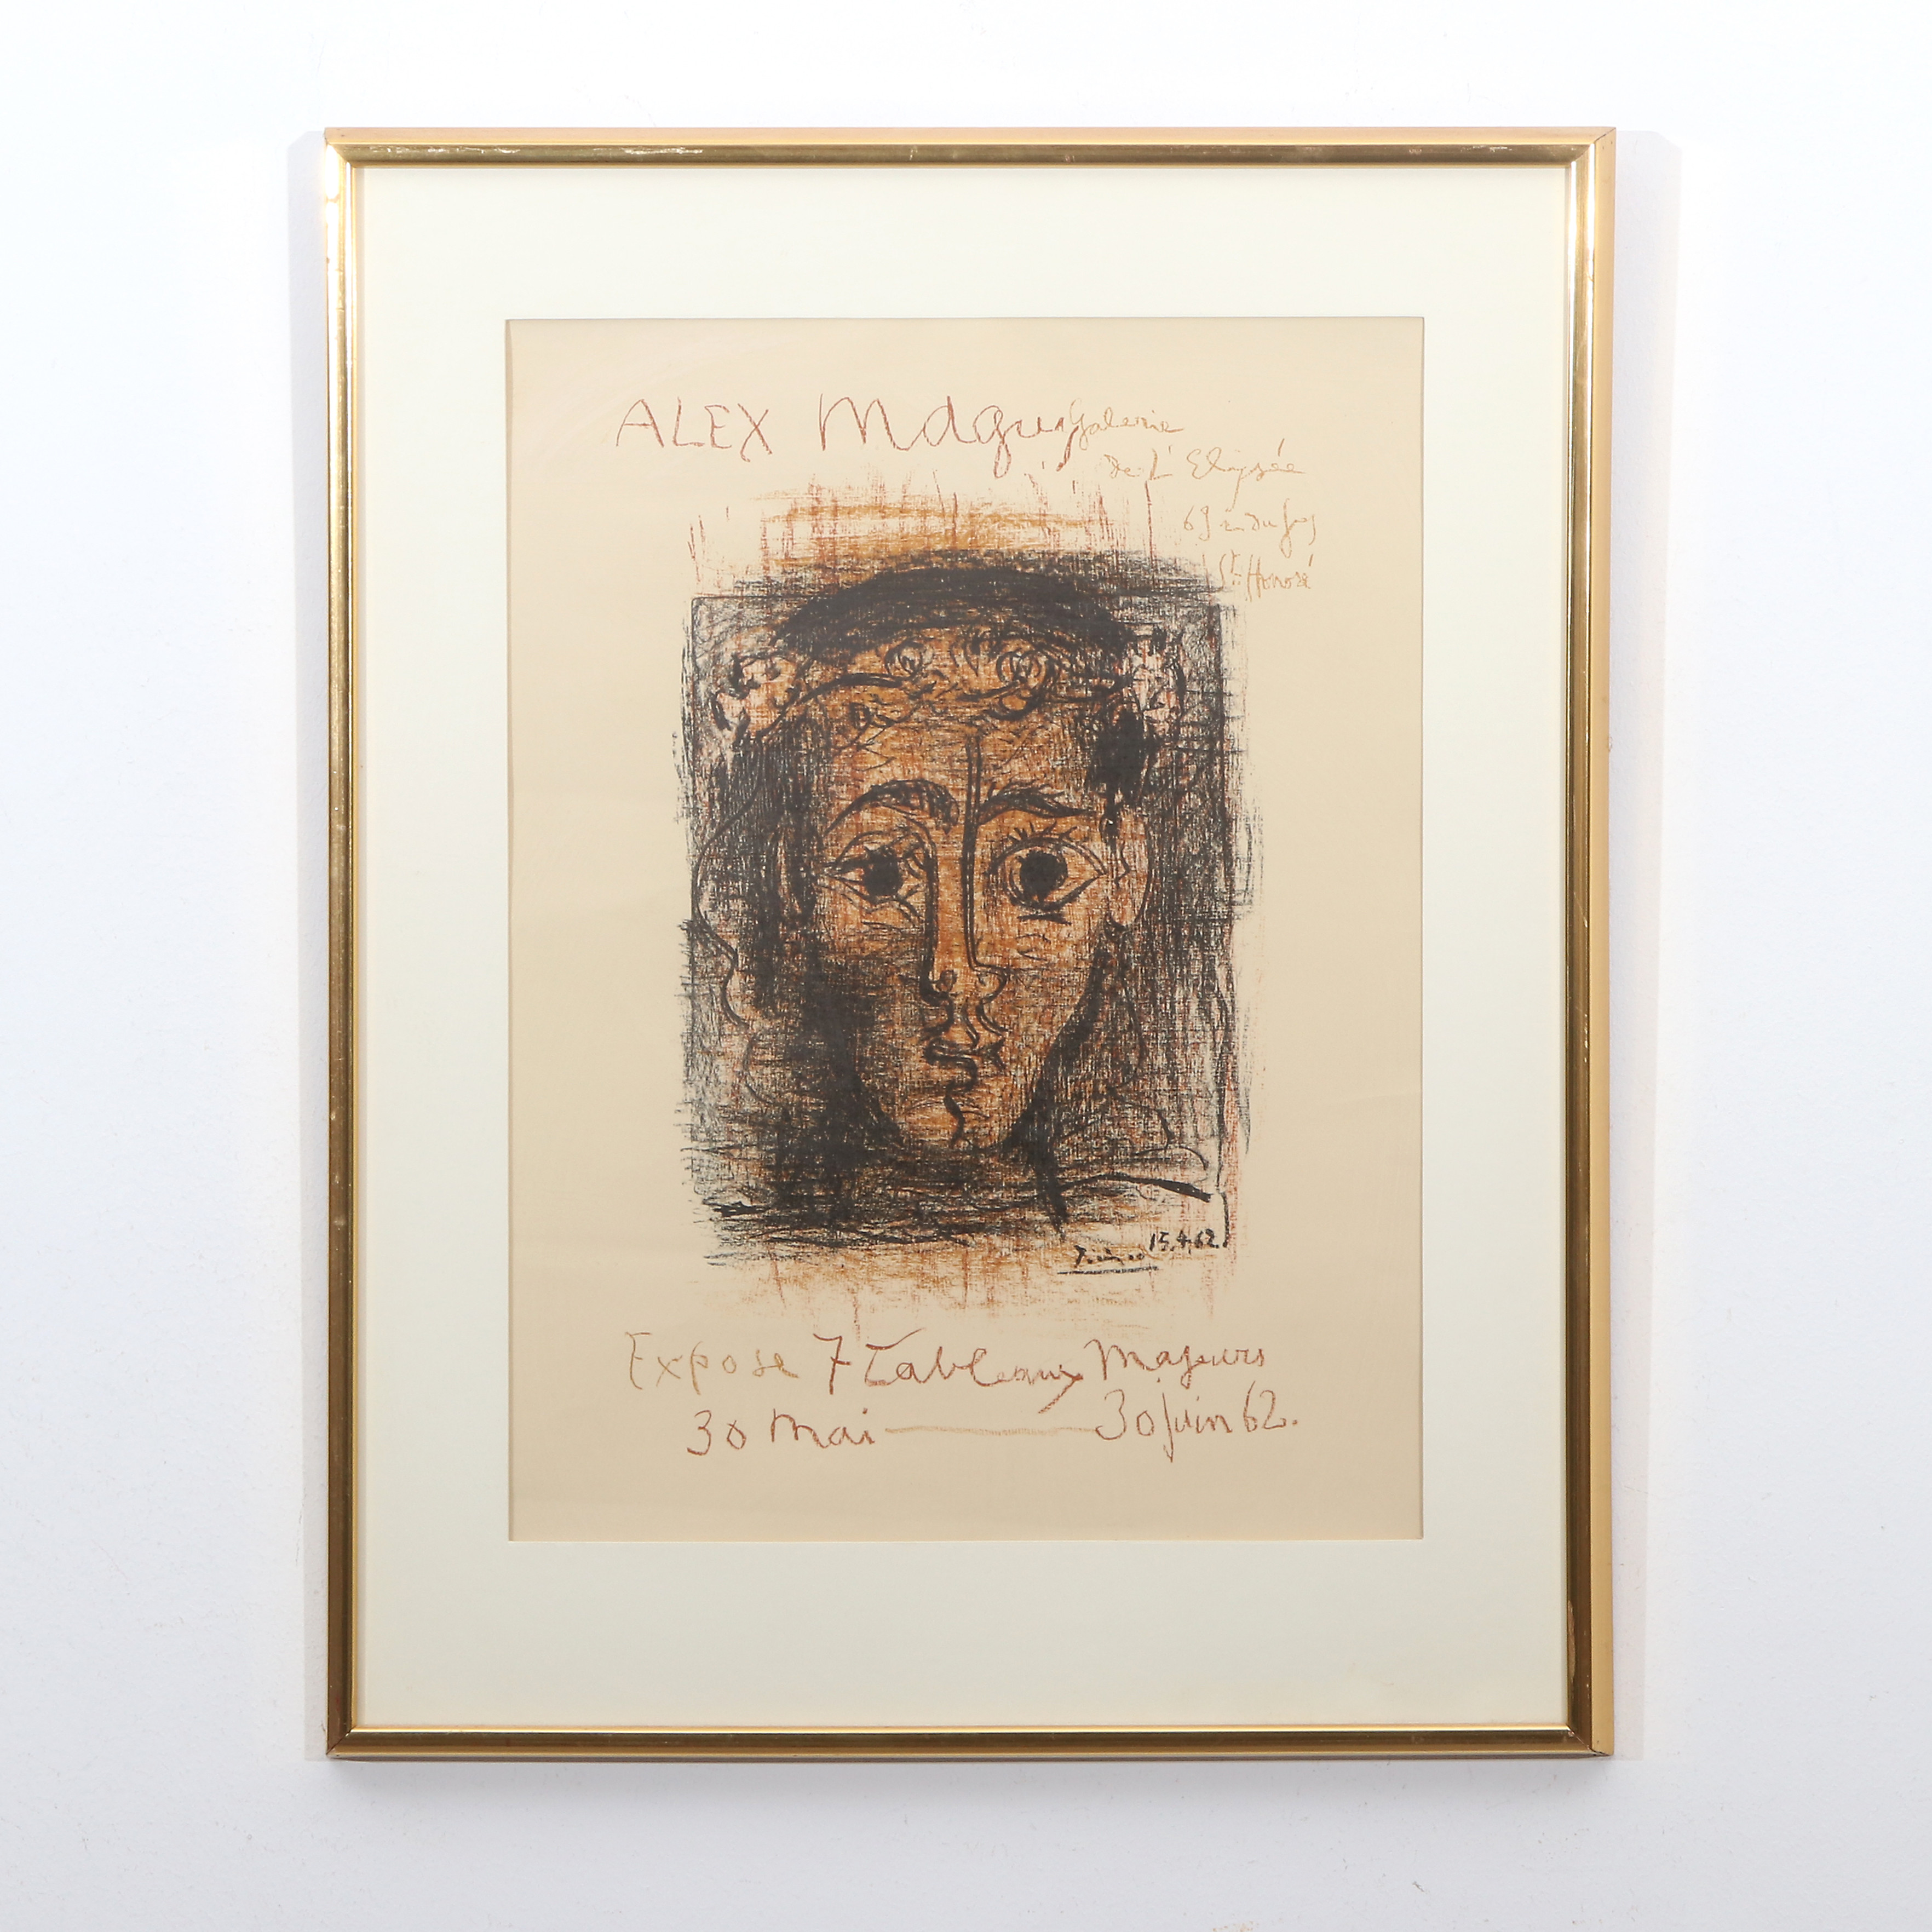 ALEX Maguy Galerie
de L'Elysée
69 r. du fbg
St Honoré
Picasso 15.4.62.
Expose 7 tableaux Majeurs
30 Mai — 30 Juin 62.